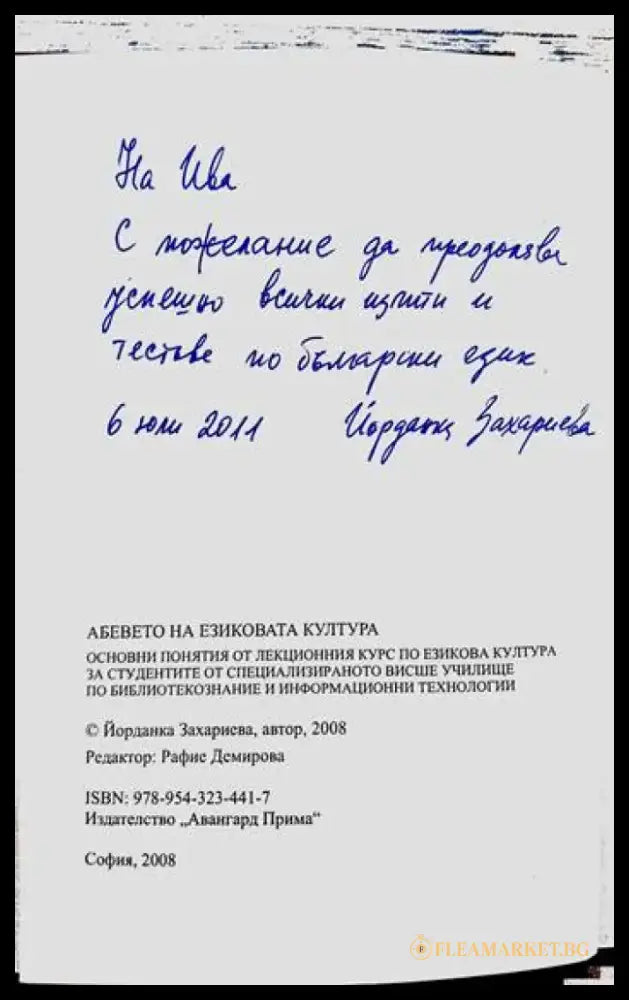 На Ива
С пожелание да преодолява
успешно всички изпити и
тестове по български език
6 юли 2011 Йорданка Захариева
АБЕВЕТО НА ЕЗИКОВАТА КУЛТУРА
ОСНОВНИ ПОНЯТИЯ ОТ ЛЕКЦИОННИЯ КУРС ПО ЕЗИКОВА КУЛТУРА
ЗА СТУДЕНТИТЕ ОТ СПЕЦИАЛИЗИРАНОТО ВИСШЕ УЧИЛИЩЕ
ПО БИБЛИОТЕКОЗНАНИЕ И ИНФОРМАЦИОННИ ТЕХНОЛОГИИ
© Йорданка Захариева, автор, 2008
Редактор: Рафие Демирова
ISBN: 978-954-323-441-7
Издателство „Авангард Прима“
София, 2008
FLEAMARKET.BG